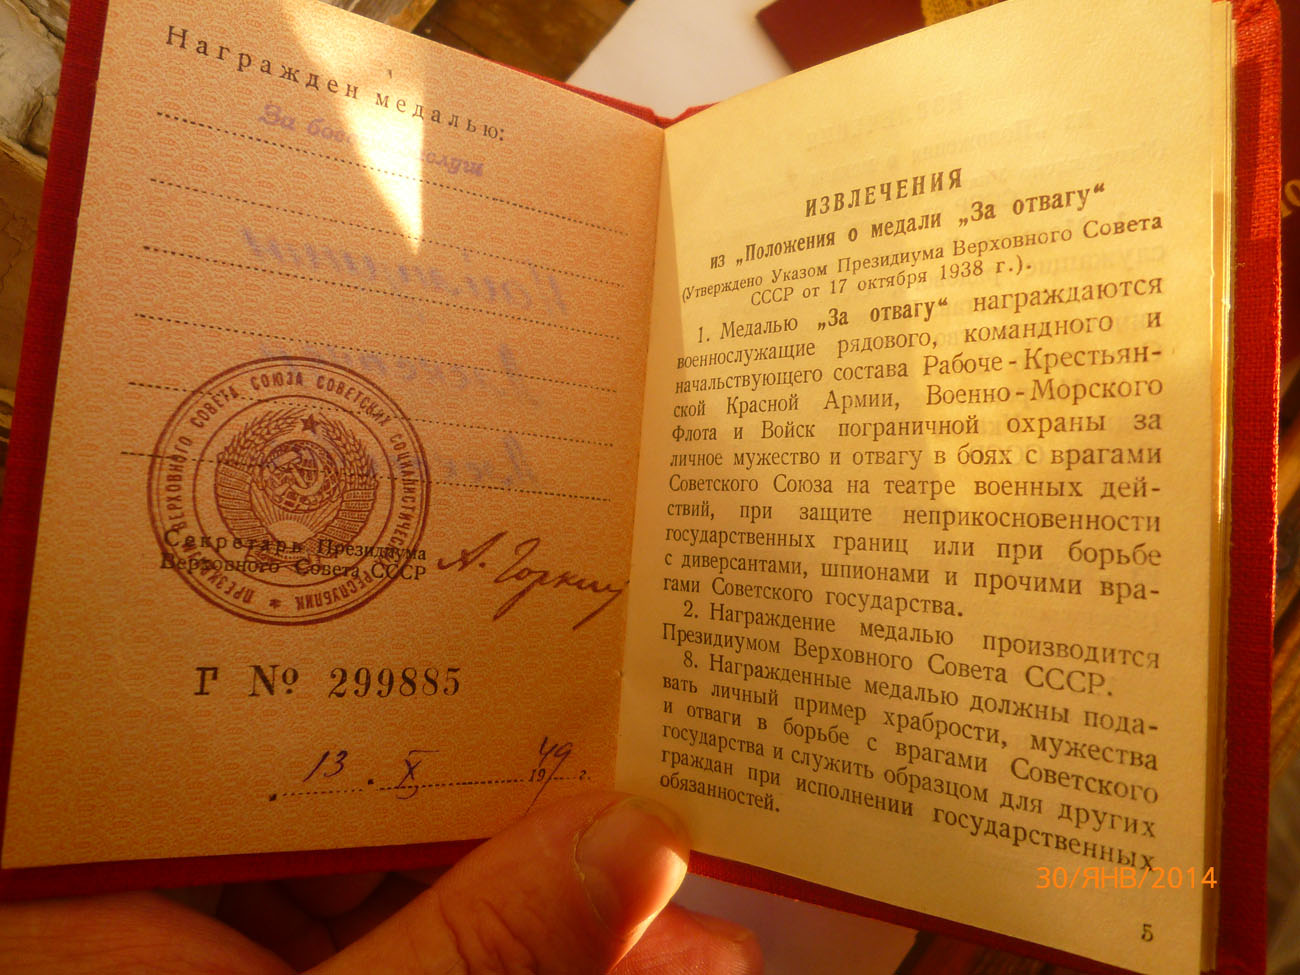 Награжден медалью:
За
Секретарь Президиума
Верховного Совета СССР
А. Горкин
ПРЕЗИДИУМ ВЕРХОВНОГО СОВЕТА СОЮЗА СОВЕТСКИХ СОЦИАЛИСТИЧЕСКИХ РЕСПУБЛИК
Г № 299885
13. X 1949 г.
ИЗВЛЕЧЕНИЯ
из „Положения о медали „За отвагу“
(Утверждено Указом Президиума Верховного Совета
СССР от 17 октября 1938 г.).
1. Медалью „За отвагу“ награждаются
военнослужащие рядового, командного и
начальствующего состава Рабоче-Крестьян-
ской Красной Армии, Военно-Морского
Флота и Войск пограничной охраны за
личное мужество и отвагу в боях с врагами
Советского Союза на театре военных дей-
ствий, при защите неприкосновенности
государственных границ или при борьбе
с диверсантами, шпионами и прочими вра-
гами Советского государства.
2. Награждение медалью производится
Президиумом Верховного Совета СССР.
8. Награжденные медалью должны пода-
вать личный пример храбрости, мужества
и отваги в борьбе с врагами Советского
государства и служить образцом для других
граждан при исполнении государственных
обязанностей.
5
30/ЯНВ/2014